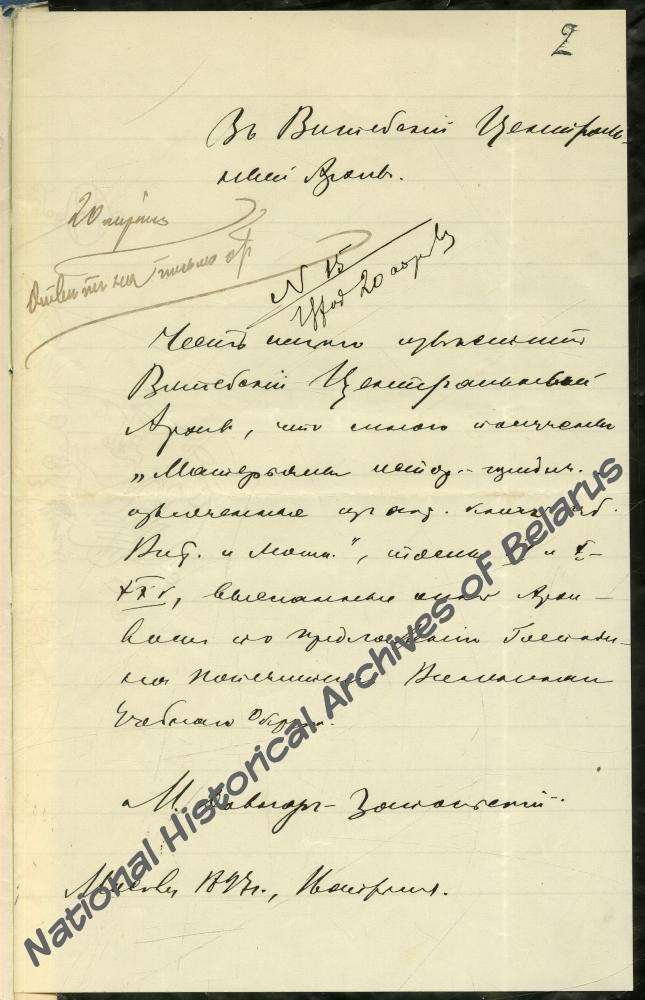 2
Въ Витебскій Централь-
ный Архивъ.
20 апрѣля
Отвѣтъ на письмо
N 15
20 апрѣля
Честь имѣю извѣстить
Витебскій Центральный
Архивъ, что мною получены
„Матеріалы истор.-юридич.
извлеченные изъ акт. книгъ губ.
Вит. и Могил.", томы и X-
XXV, высланные Архи-
вомъ по предложенію Господи-
на Попечителя Виленскаго
Учебнаго Округа.
М. Довнаръ-Запольскій.
Москва 1897г., 14 апрѣля.
National Historical Archives of Belarus